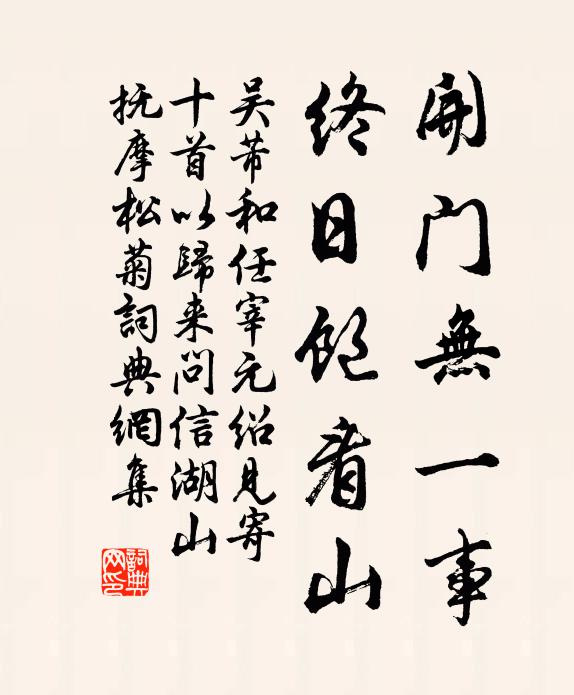 開門無一事
終日飽看山
吴芾和任宰元绍見寄
十首以歸来问信湖山
抚摩松菊詞典網集
詞典
网印